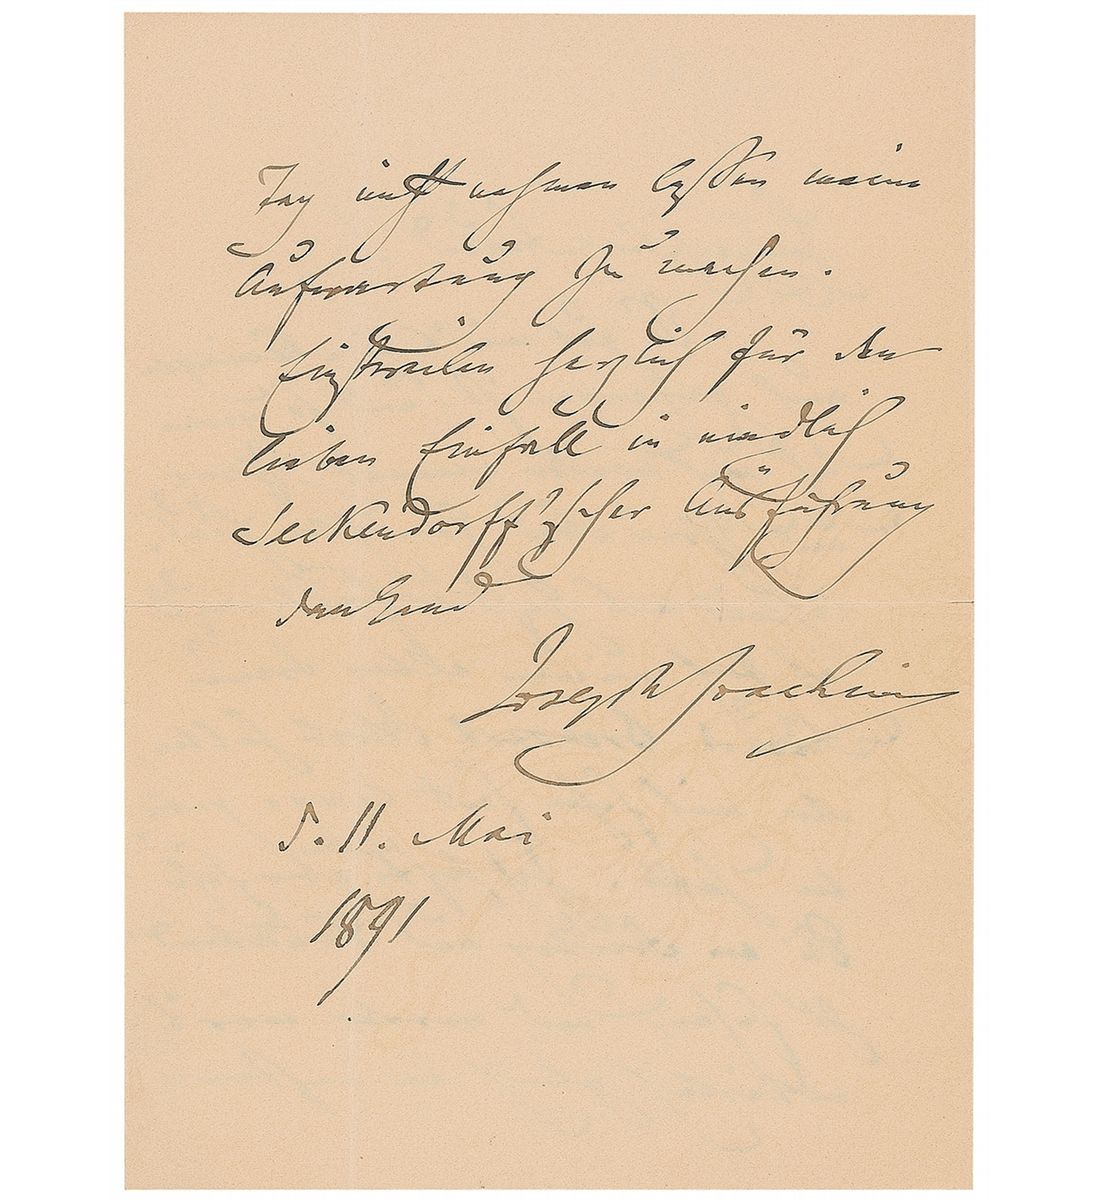 Tag nicht nehmen lassen meine
Aufwartung zu machen.
Einstweilen herzlich für den
lieben Einfall in niedlich
Seckendorff'scher Ausführung
dankend
Joseph Joachim
d. 11. Mai
1891